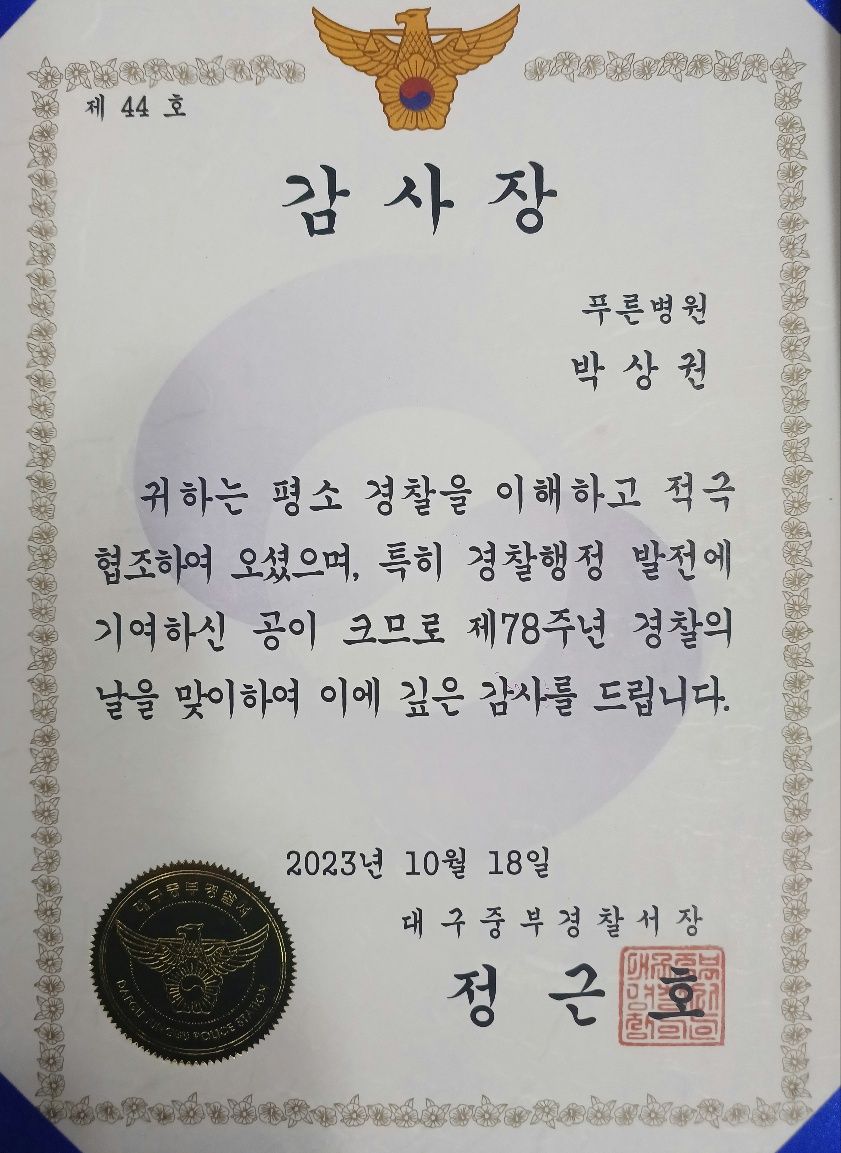 제 44 호
감 사 장
푸른병원
박 상 권
귀하는 평소 경찰을 이해하고 적극
협조하여 오셨으며, 특히 경찰행정 발전에
기여하신 공이 크므로 제78주년 경찰의
날을 맞이하여 이에 깊은 감사를 드립니다.
2023년 10월 18일
대구중부경찰서장
정 근 호
대구중부경찰서
POLICE STATION